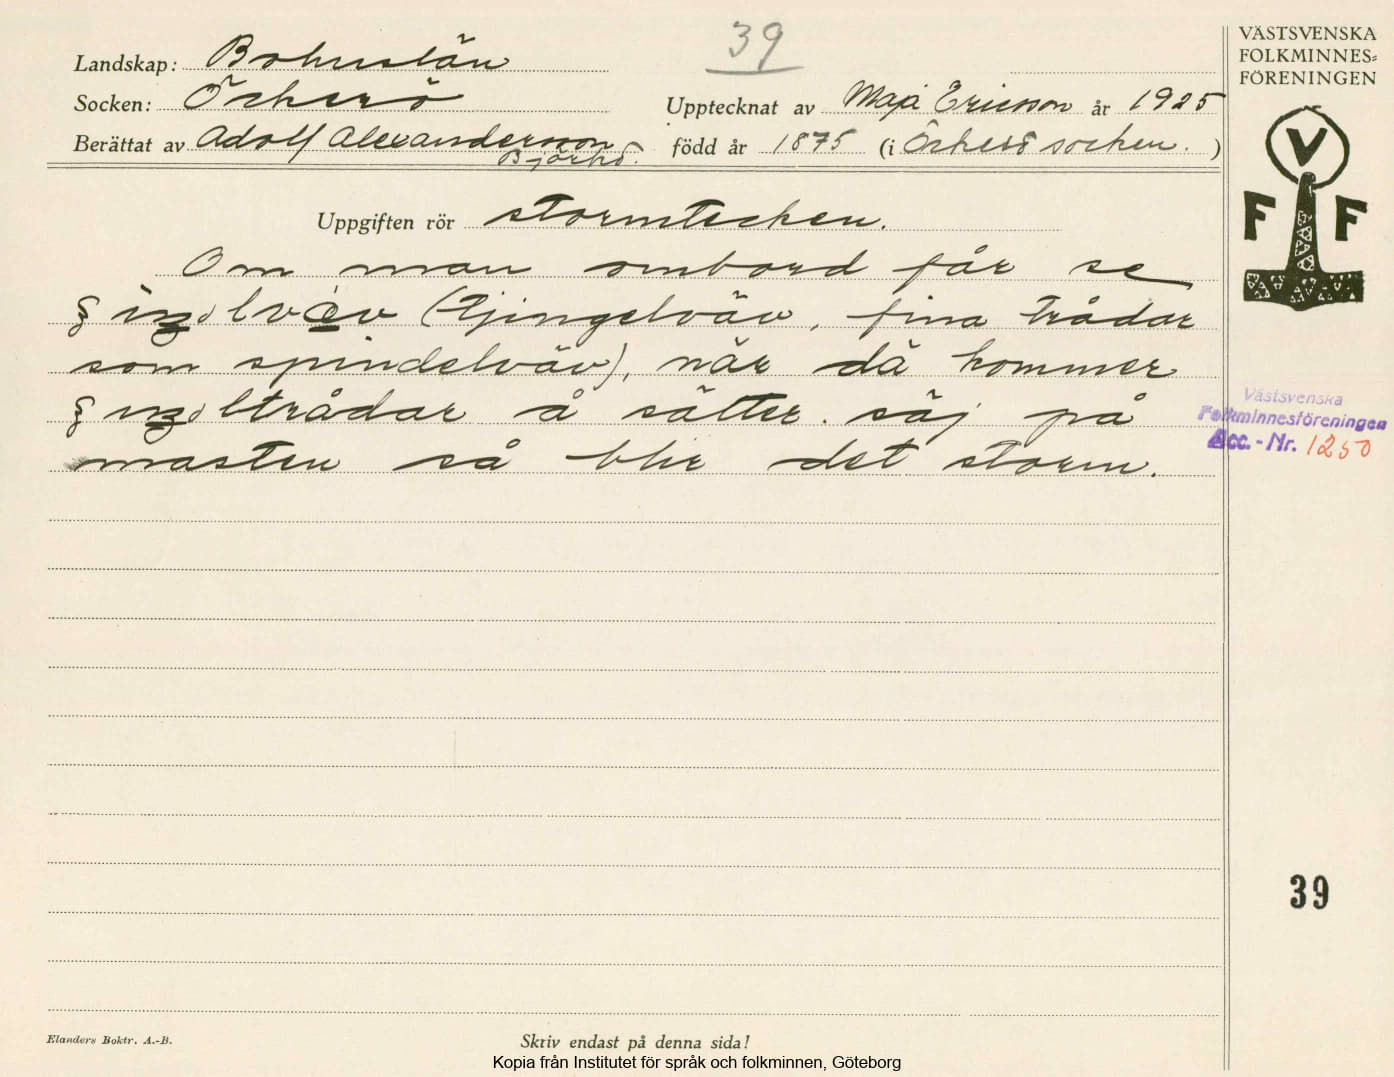 39
VÄSTSVENSKA
FOLKMINNES=
FÖRENINGEN
Landskap: Bohuslän
Socken: Öckerö
Upptecknat av Maja Ericsson år 1925
Berättat av Adolf Alexandersson född år 1875 (i Öckerö socken.)
Björkö.
V
F F
Uppgiften rör stormtecken.
Om man ombord får se
(tjingelväv, fina trådar
som spindelväv), när då kommer
å sätter säj på
masten så blir det storm.
Västsvenska
Folkminnesföreningen
Acc.-Nr. 1250
39
Elanders Boktr. A.-B.
Skriv endast på denna sida!
Kopia från Institutet för språk och folkminnen, Göteborg